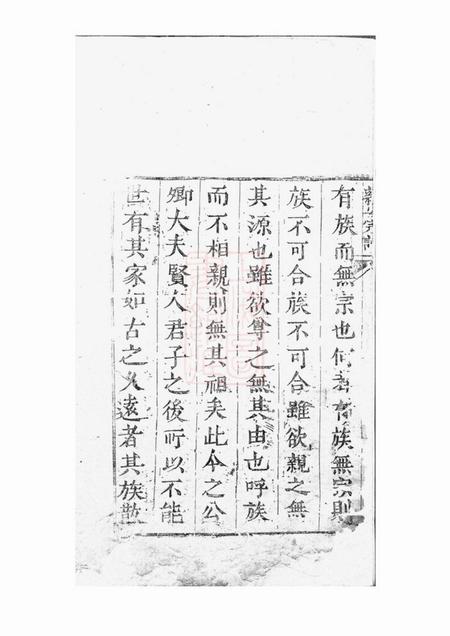 有族而無宗也何者有族無宗則
族不可合族不可合雖欲親之無
其源也雖欲尊之無其由也呼族
而不相親則無其祖矣此今之公
卿大夫賢人君子之後所以不能
世有其家如古之久遠者其族散